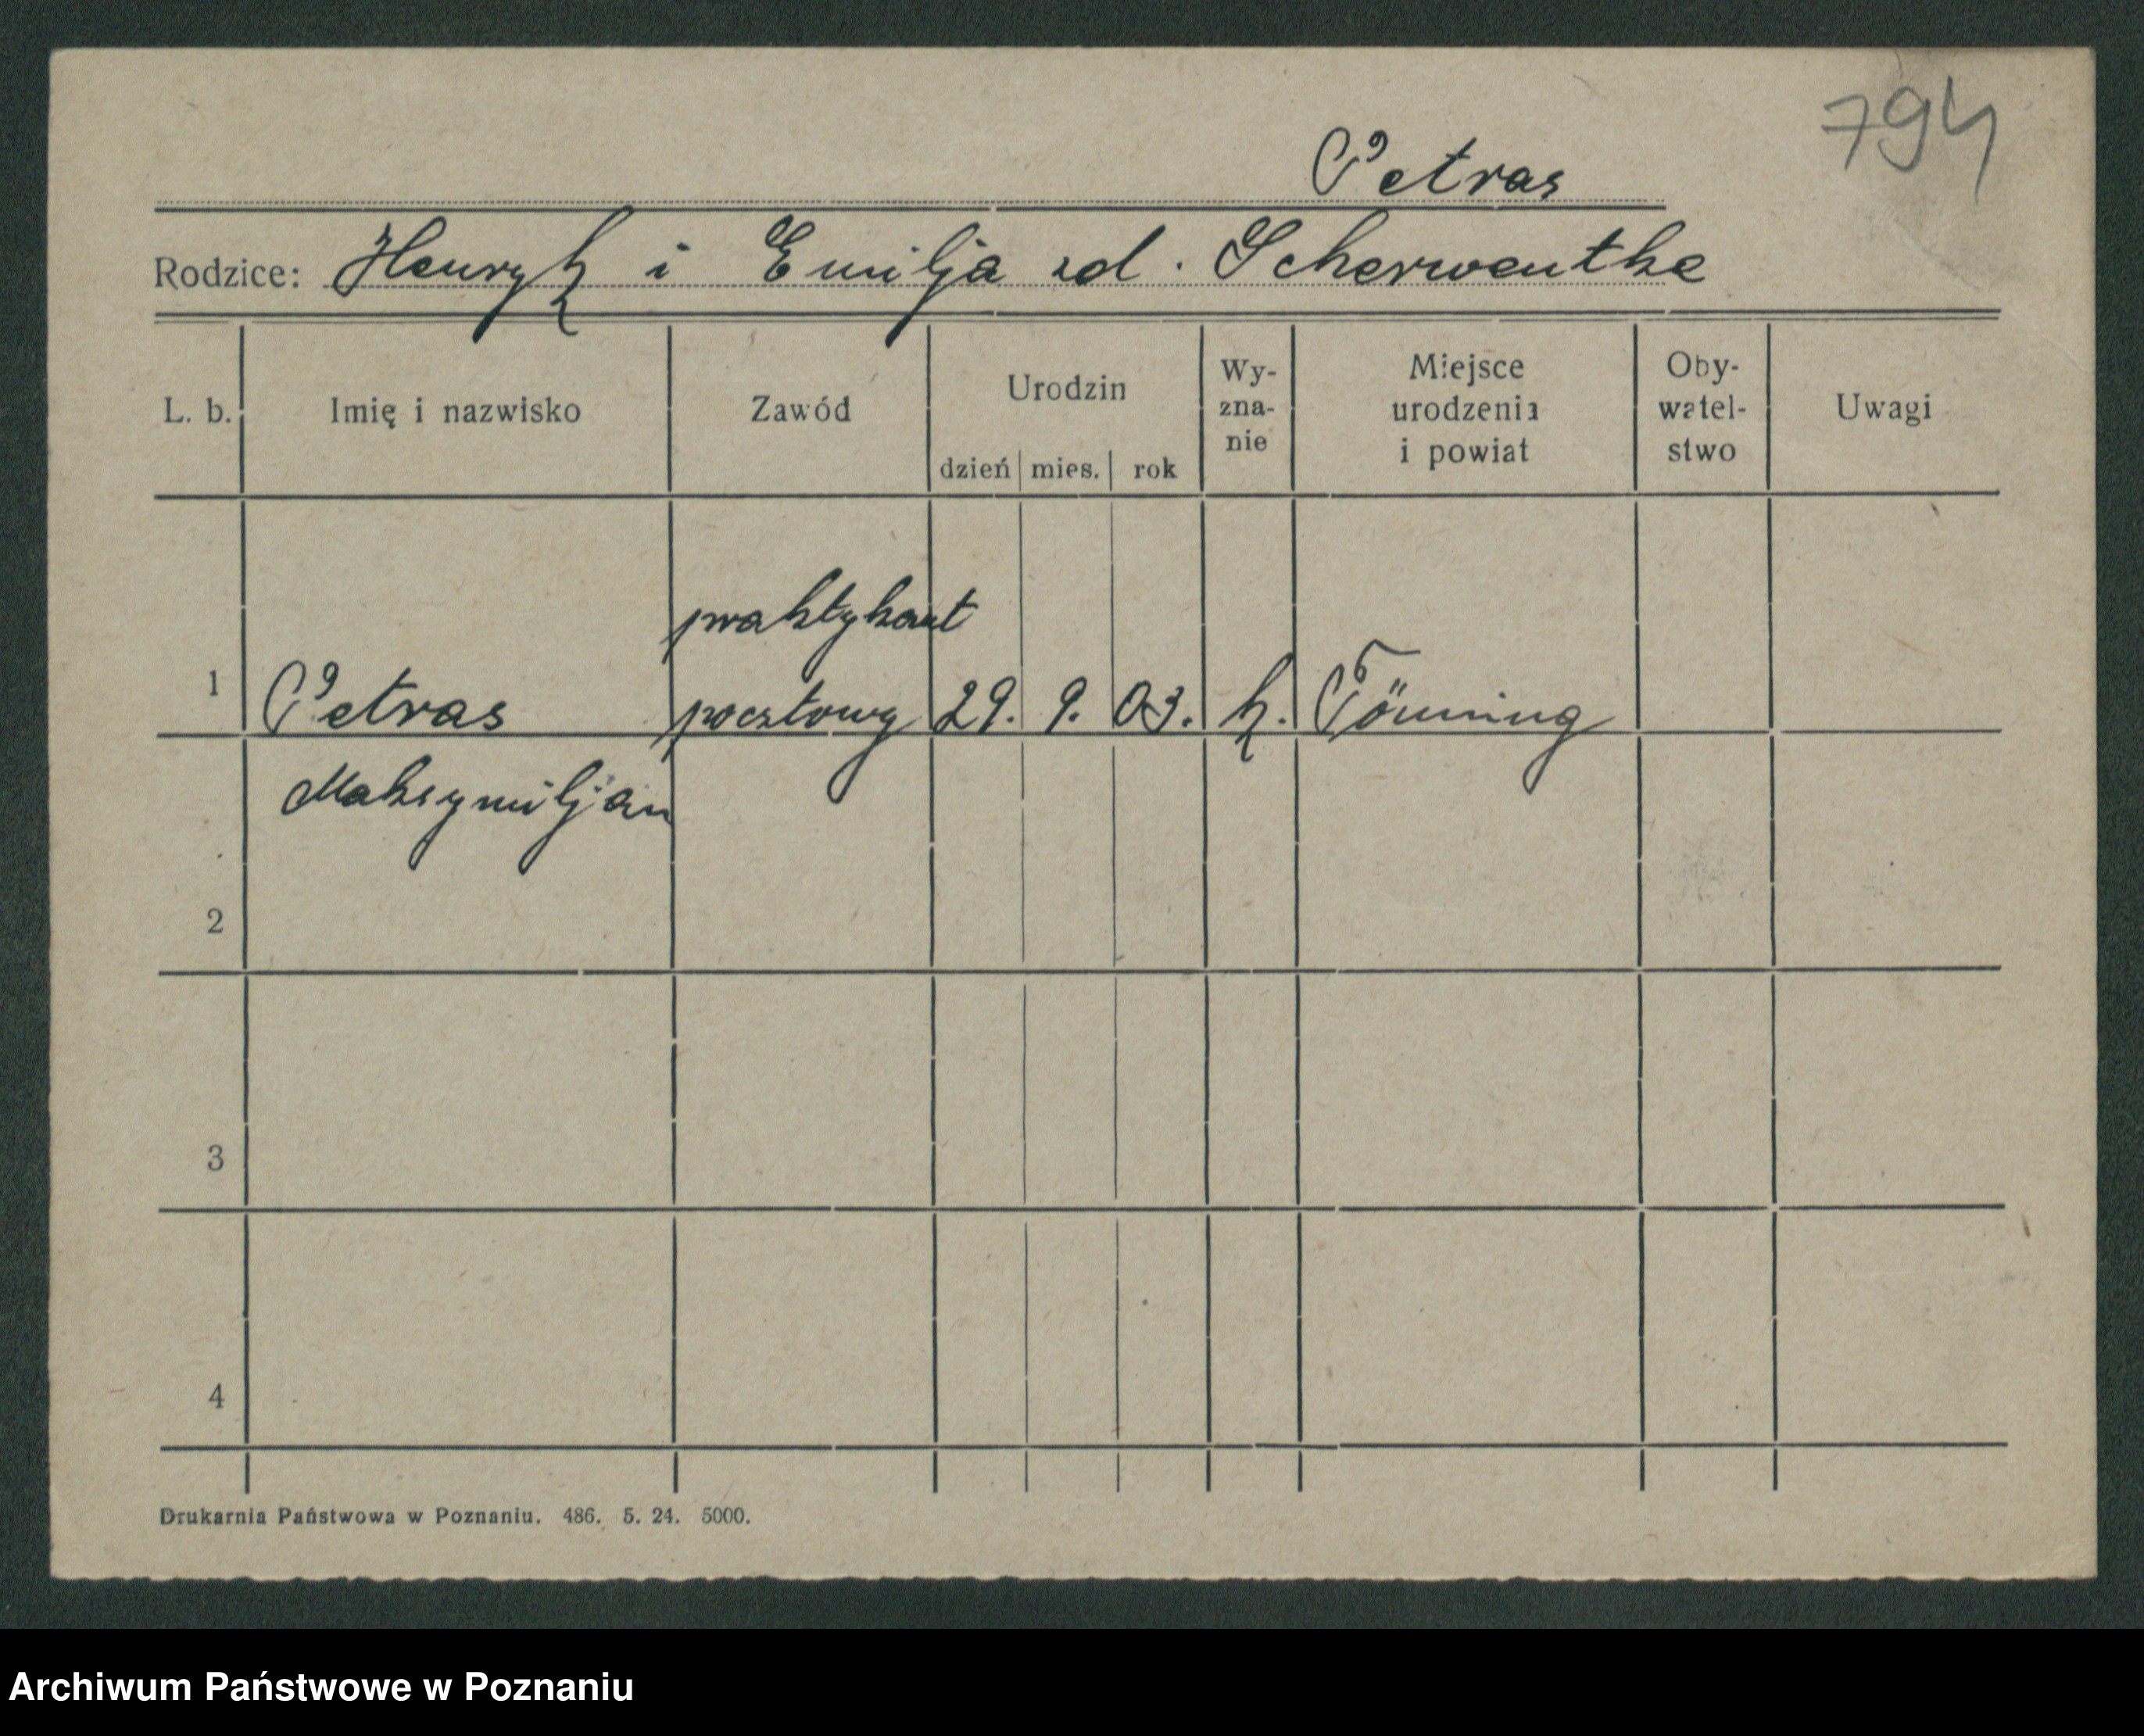 794
Petras
Rodzice: Henryk i Emilja zd. Scherwentke
L. b. Imię i nazwisko Zawód Urodzin dzień mies. rok Wy-zna-nie Miejsce urodzenia i powiat Oby-watel-stwo Uwagi
praktykant
1 Petras pocztowy 29. 9. 03. k. Tönning
Maksymiljan
2
3
4
Drukarnia Państwowa w Poznaniu. 486. 5. 24. 5000.
Archiwum Państwowe w Poznaniu